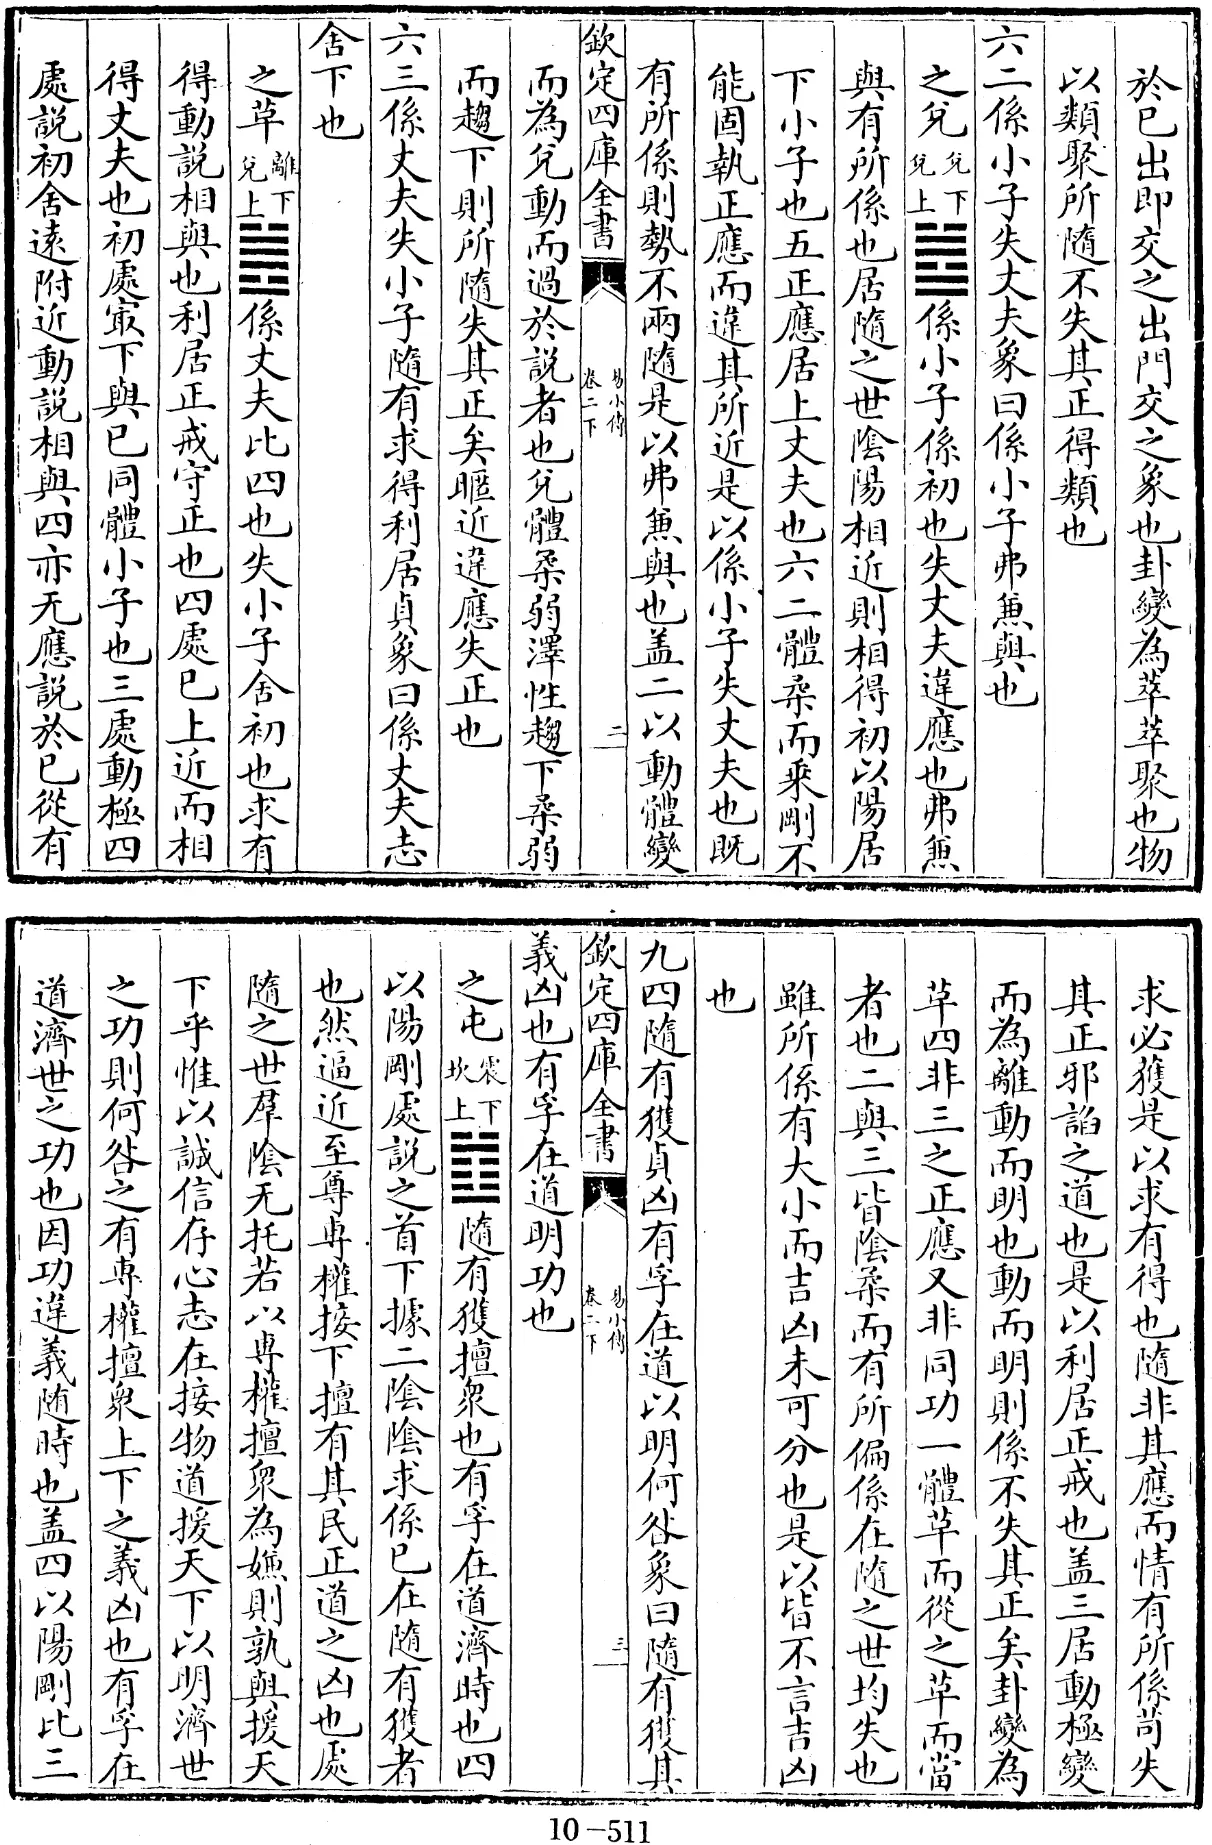 於已出即交之出門交之象也卦變為萃萃聚也物
以類聚所隨不失其正得類也
六二係小子失丈夫象曰係小子弗兼與也
之兌兌下兌上䷹係小子係初也失丈夫違應也弗兼
與有所係也居隨之世陰陽相近則相得初以陽居
下小子也五正應居上丈夫也六二體柔而乘剛不
能固執正應而違其所近是以係小子失丈夫也既
有所係則勢不兩隨是以弗兼與也盖二以動體變
欽定四庫全書 易小傳 卷二下 二
而為兌動而過於説者也兌體柔弱澤性趨下柔弱
而趨下則所隨失其正矣暱近違應失正也
六三係丈夫失小子隨有求得利居貞象曰係丈夫志
舍下也
之革離下兌上䷰係丈夫比四也失小子舍初也求有
得動説相與也利居正戒守正也四處已上近而相
得丈夫也初處㝡下與已同體小子也三處動極四
處説初舍遠附近動説相與四亦无應説於已從有
求必獲是以求有得也隨非其應而情有所係苟失
其正邪諂之道也是以利居正戒也盖三居動極變
而為離動而明也動而明則係不失其正矣卦變為
革四非三之正應又非同功一體革而從之革而當
者也二與三皆陰柔而有所偏係在隨之世均失也
雖所係有大小而吉凶未可分也是以皆不言吉凶
也
九四隨有獲貞凶有孚在道以明何咎象曰隨有獲其
欽定四庫全書 易小傳 卷二下 三
義凶也有孚在道明功也
之屯震下坎上䷂隨有獲擅衆也有孚在道濟時也四
以陽剛處説之首下據二陰陰求係已在隨有獲者
也然逼近至尊専權接下擅有其民正道之凶也處
隨之世羣陰无托若以専權擅衆為嫌則孰與援天
下乎惟以誠信存心志在接物道援天下以明濟世
之功則何咎之有専權擅衆上下之義凶也有孚在
道濟世之功也因功違義随時也盖四以陽剛比三
10-511